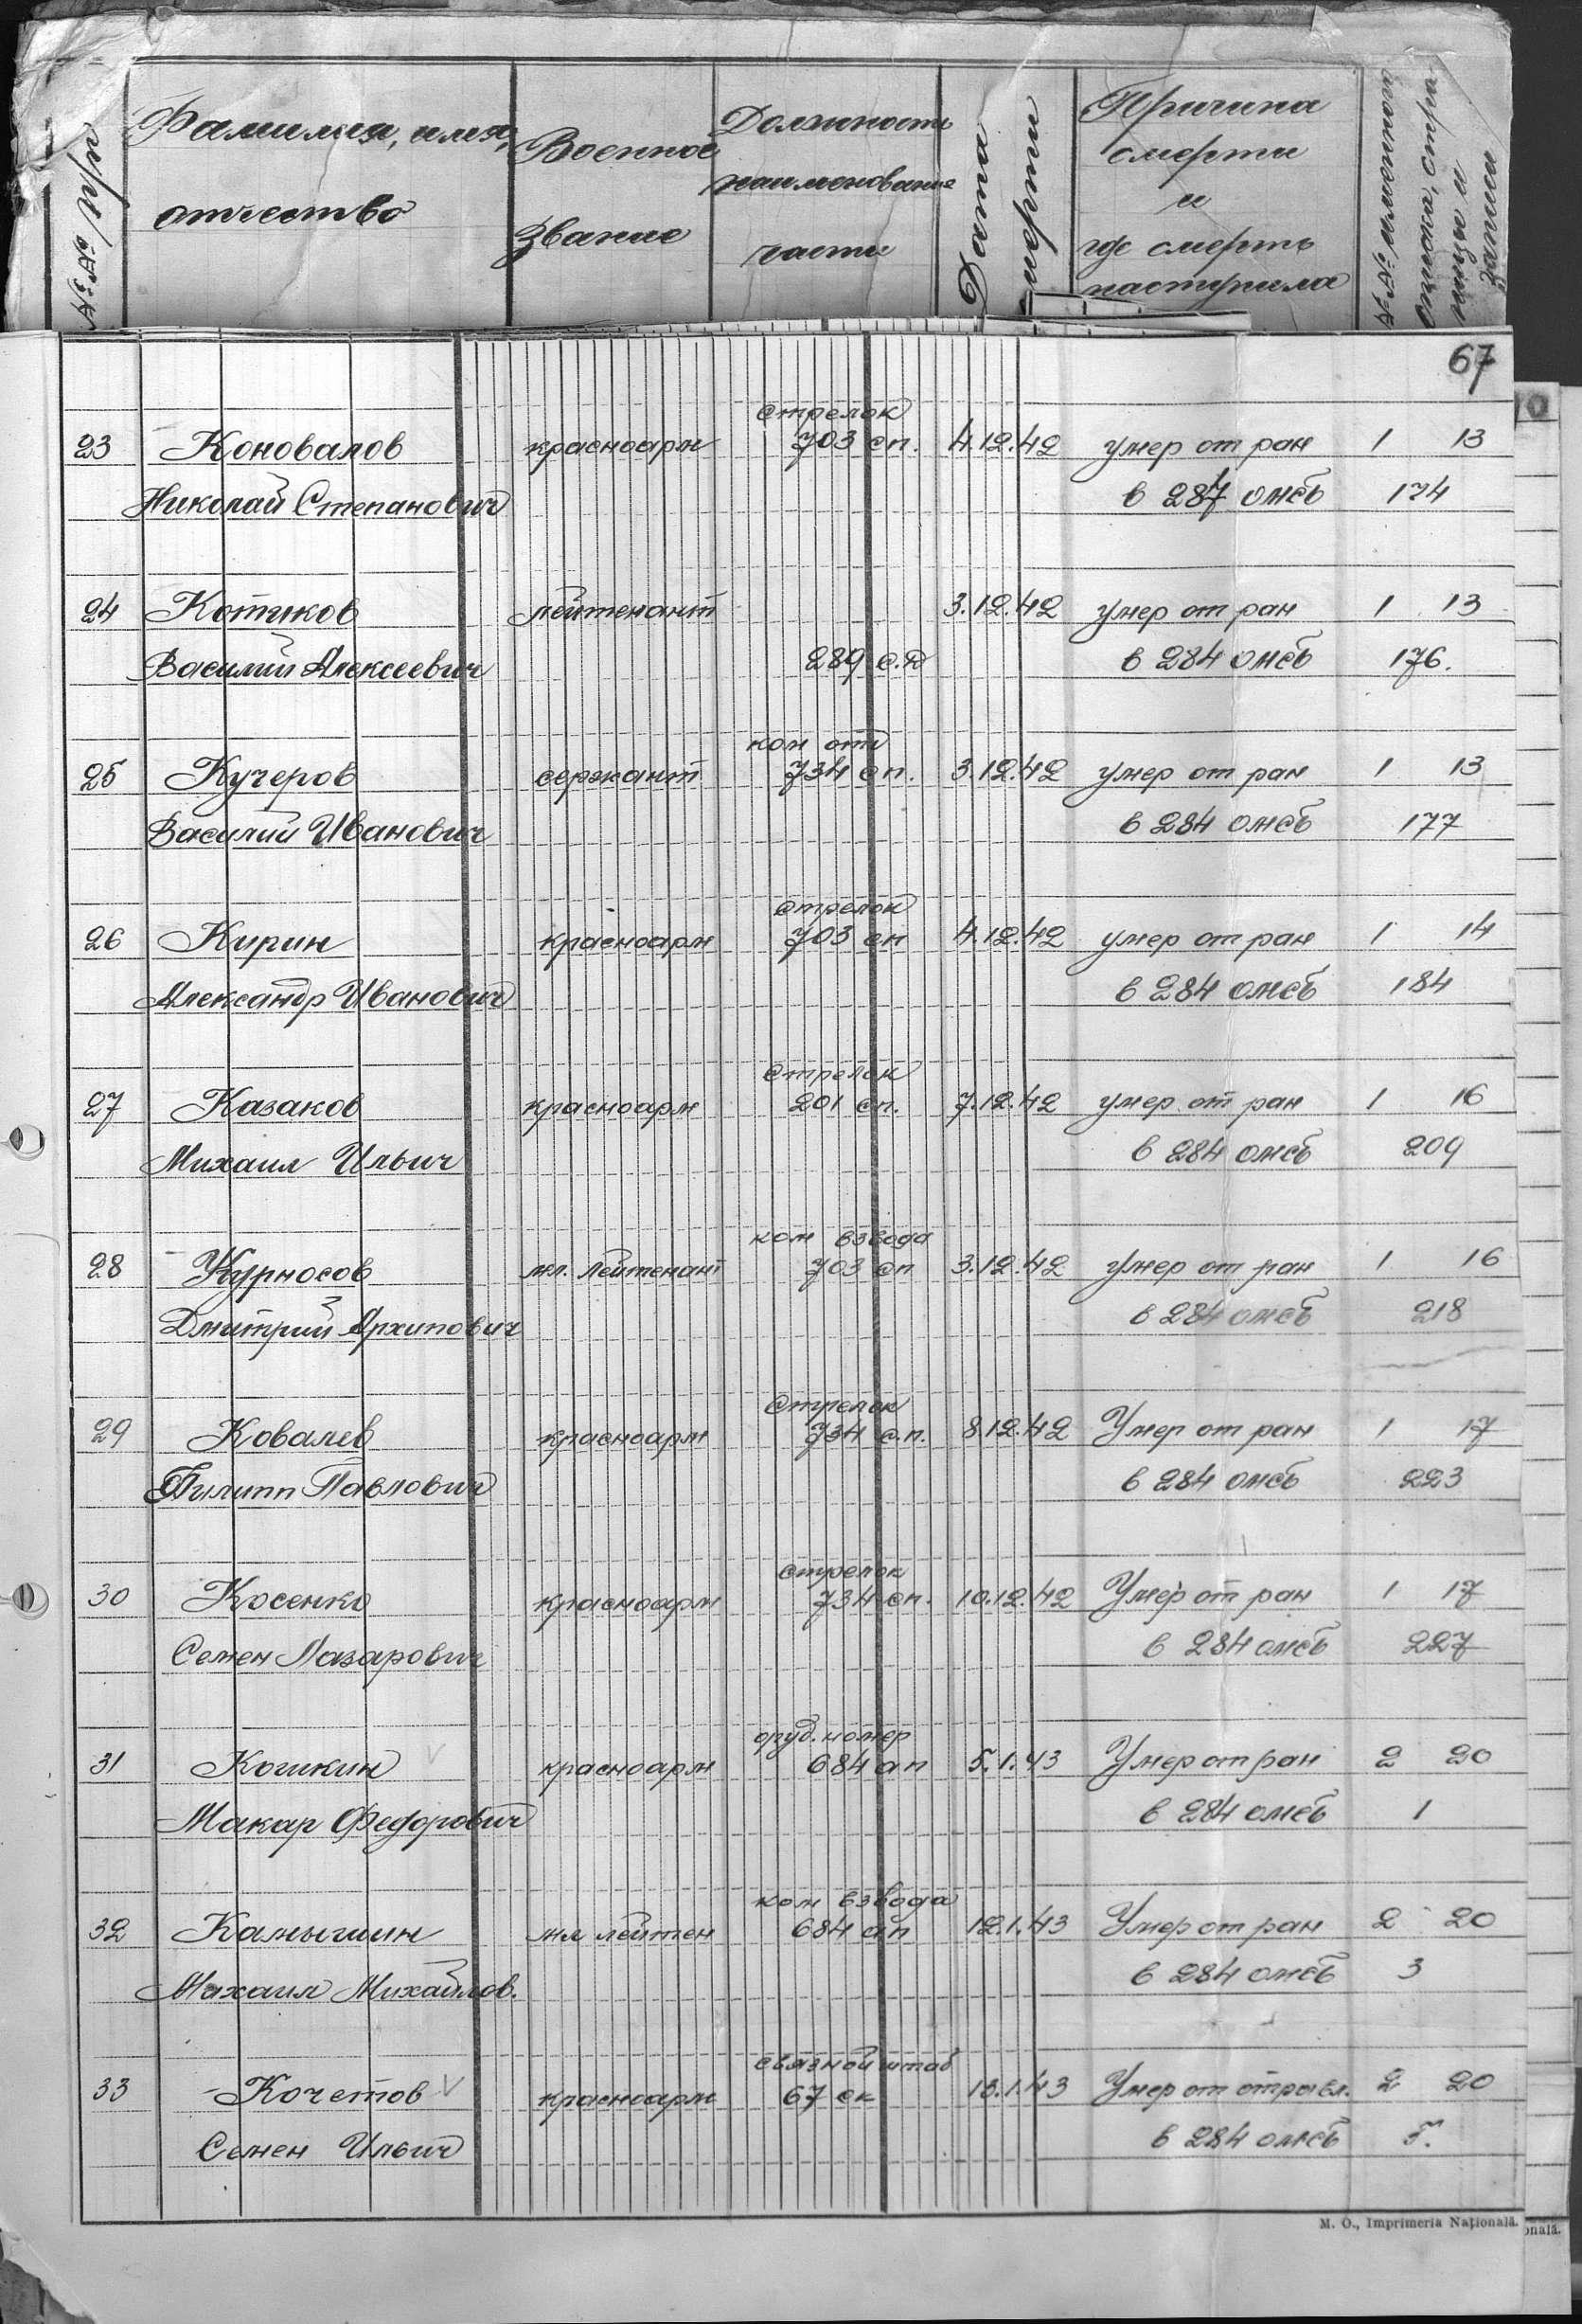 №№ п/п
Фамилия, имя, отчество
Военное звание
Должность наименование части
Дата смерти
Причина смерти и где смерть наступила
№№ именной списка, страницы и записи
67
стрелок
23 Коновалов красноарм 703 сп. 4.12.42 умер от ран 1 13
Николай Степанович в 287 омсб 174
24 Котиков лейтенант 3.12.42 умер от ран 1 13
Василий Алексеевич 289 с.д в 284 омсб 176.
ком отд
25 Кучеров сержант 734 сп. 3.12.42 умер от ран 1 13
Василий Иванович в 284 омсб 177
стрелок
26 Кирин красноарм 703 сп 4.12.42 умер от ран 1 14
Александр Иванович в 284 омсб 184
стрелок
27 Казаков красноарм 201 сп. 7.12.42 умер от ран 1 16
Михаил Ильич в 284 омсб 209
ком взвода
28 Курносов мл. лейтенант 703 сп 3.12.42 умер от ран 1 16
Дмитрий Архипович в 284 омсб 218
Стрелок
29 Ковалев красноарм 734 с.п. 8.12.42 Умер от ран 1 17
Филипп Павлович в 284 омсб 223
стрелок
30 Косенко красноарм 734 сп. 10.12.42 Умер от ран 1 17
Семен Лазарович в 284 омсб 227
оруд. номер
31 Кошкин красноарм 684 ап 5.1.43 Умер от ран 2 20
Макар Федорович в 284 омсб 1
ком взвода
32 Камышин мл лейтен 684 ап 12.1.43 Умер от ран 2 20
Михаил Михайлов. в 284 омсб 3
связной штаб
33 Кочетов красноарм 67 ск 13.1.43 Умер от отравл. 2 20
Семен Ильич в 284 омсб 5.
M. O., Imprimeria Națională.
onală.